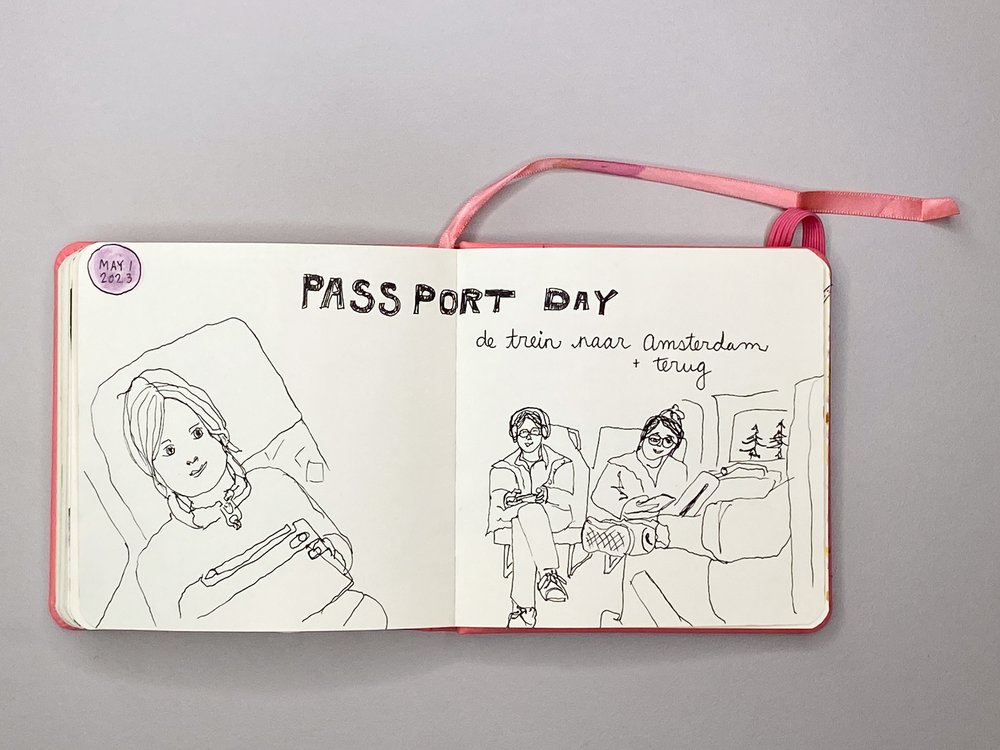 MAY 1
2023
PASSPORT DAY
de trein naar Amsterdam
+ terug